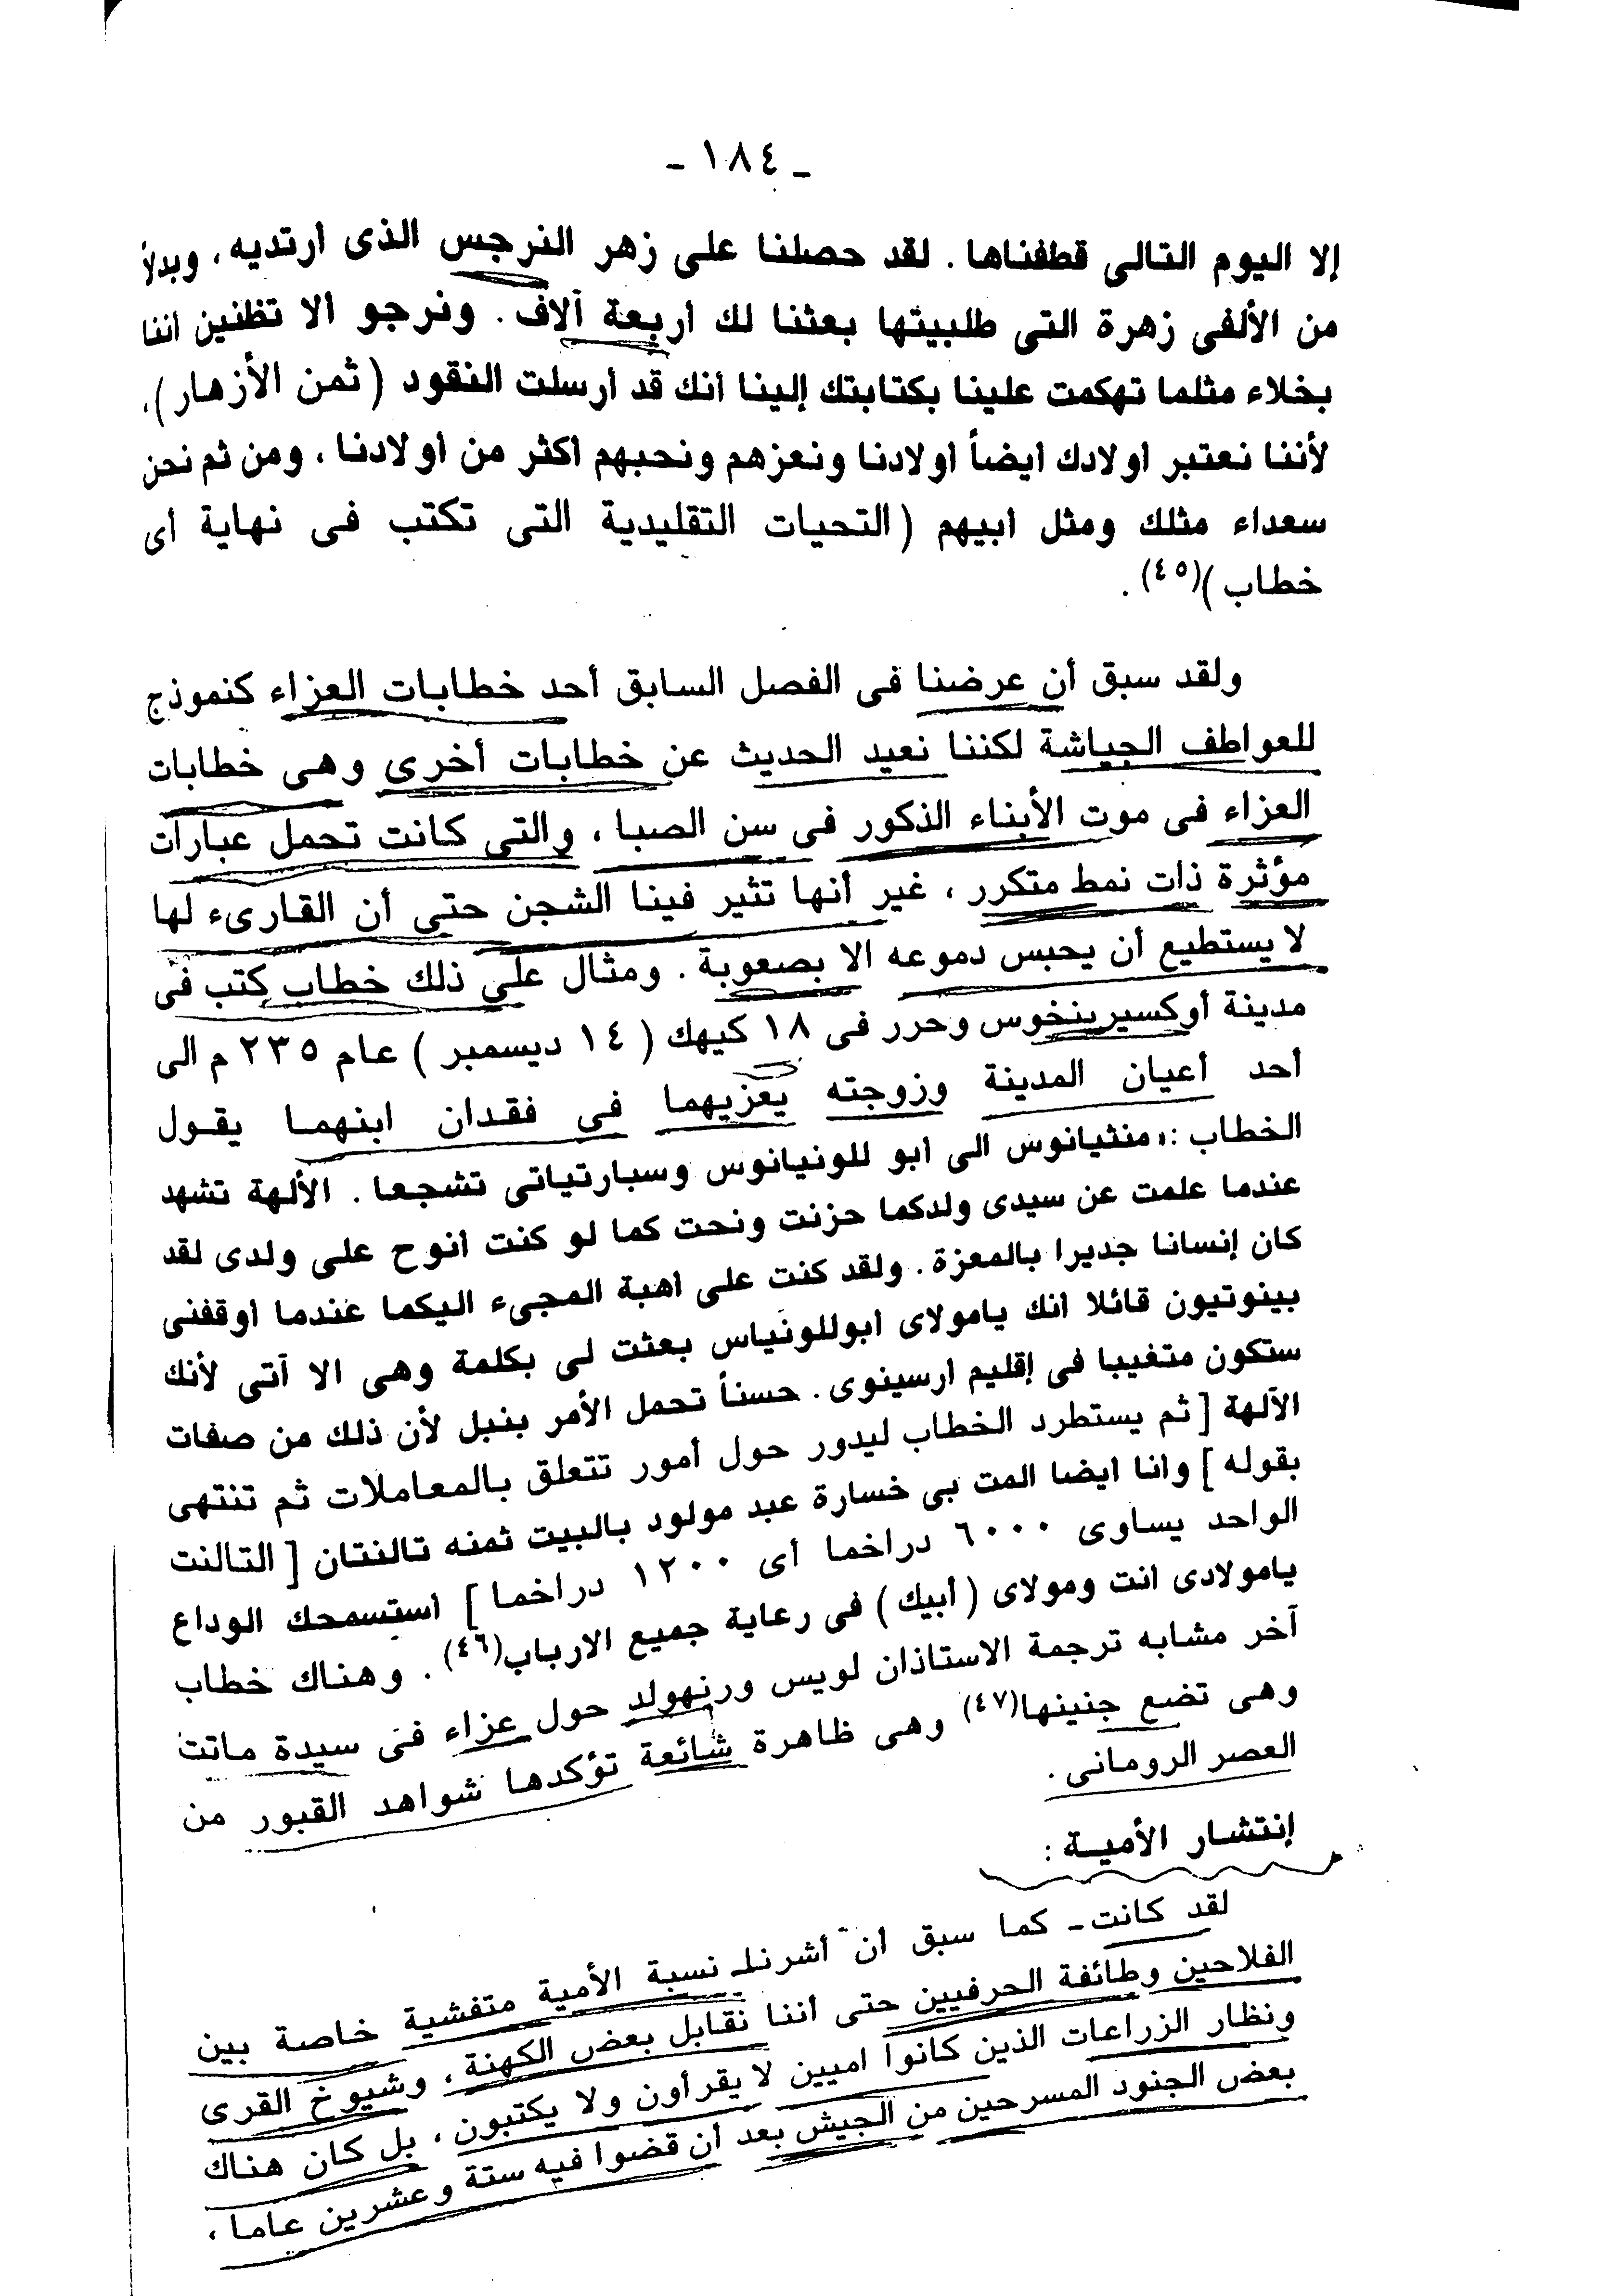 ـ ١٨٤ ـ
إلا اليوم التالى قطفناها . لقد حصلنا على زهر النرجس الذى ارتديه ، وبدلاً
من الألفى زهرة التى طلبيتها بعثنا لك أربعة آلاف . ونرجو الا تظنين اننا
بخلاء مثلما تهكمت علينا بكتابتك إلينا أنك قد أرسلت النقود ( ثمن الأزهار ) ،
لأننا نعتبر اولادك ايضاً اولادنا ونعزهم ونحبهم اكثر من اولادنا ، ومن ثم نحن
سعداء مثلك ومثل ابيهم ( التحيات التقليدية التى تكتب فى نهاية أى
خطاب )(٤٥) .
ولقد سبق أن عرضنا فى الفصل السابق أحد خطابات العزاء كنموذج
للعواطف الجياشة لكننا نعيد الحديث عن خطابات أخرى وهى خطابات
العزاء فى موت الأبناء الذكور فى سن الصبا ، والتى كانت تحمل عبارات
مؤثرة ذات نمط متكرر ، غير أنها تثير فينا الشجن حتى أن القارىء لها
لا يستطيع أن يحبس دموعه الا بصعوبة . ومثال على ذلك خطاب كتب فى
مدينة أوكسيرينخوس وحرر فى ١٨ كيهك ( ١٤ ديسمبر ) عام ٢٣٥ م الى
أحد أعيان المدينة وزوجته يعزيهما فى فقدان ابنهما يقول
الخطاب :« منثيانوس الى ابو للونيانوس وسبارتياتى تشجعا . الألهة تشهد
عندما علمت عن سيدى ولدكما حزنت ونحت كما لو كنت أنوح على ولدى لقد
كان إنسانا جديرا بالمعزة . ولقد كنت على اهبة المجىء اليكما عندما اوقفنى
بينوتيون قائلا انك يامولاى ابوللونياس بعثت لى بكلمة وهى الا آتى لأنك
ستكون متغيبا فى إقليم ارسينوى . حسناً تحمل الأمر بنبل لأن ذلك من صفات
الآلهة [ ثم يستطرد الخطاب ليدور حول أمور تتعلق بالمعاملات ثم تنتهى
بقوله ] وانا ايضا المت بى خسارة عبد مولود بالبيت ثمنه تالنتان [ التالنت
الواحد يساوى ٦٠٠٠ دراخما أى ١٢٠٠ دراخما ] استسمحك الوداع
يامولادى انت ومولاى ( أبيك ) فى رعاية جميع الارباب(٤٦) . وهناك خطاب
آخر مشابه ترجمة الاستاذان لويس ورنهولد حول عزاء فى سيدة ماتت
وهى تضع جنينها(٤٧) وهى ظاهرة شائعة تؤكدها شواهد القبور من
العصر الرومانى .
إنتشار الأمية :
لقد كانت ـ كما سبق أن أشرنا ـ نسبة الأمية متفشية خاصة بين
الفلاحين وطائفة الحرفيين حتى أننا نقابل بعض الكهنة ، وشيوخ القرى
ونظار الزراعات الذين كانوا اميين لا يقرأون ولا يكتبون ، بل كان هناك
بعض الجنود المسرحين من الجيش بعد أن قضوا فيه ستة وعشرين عاما ،